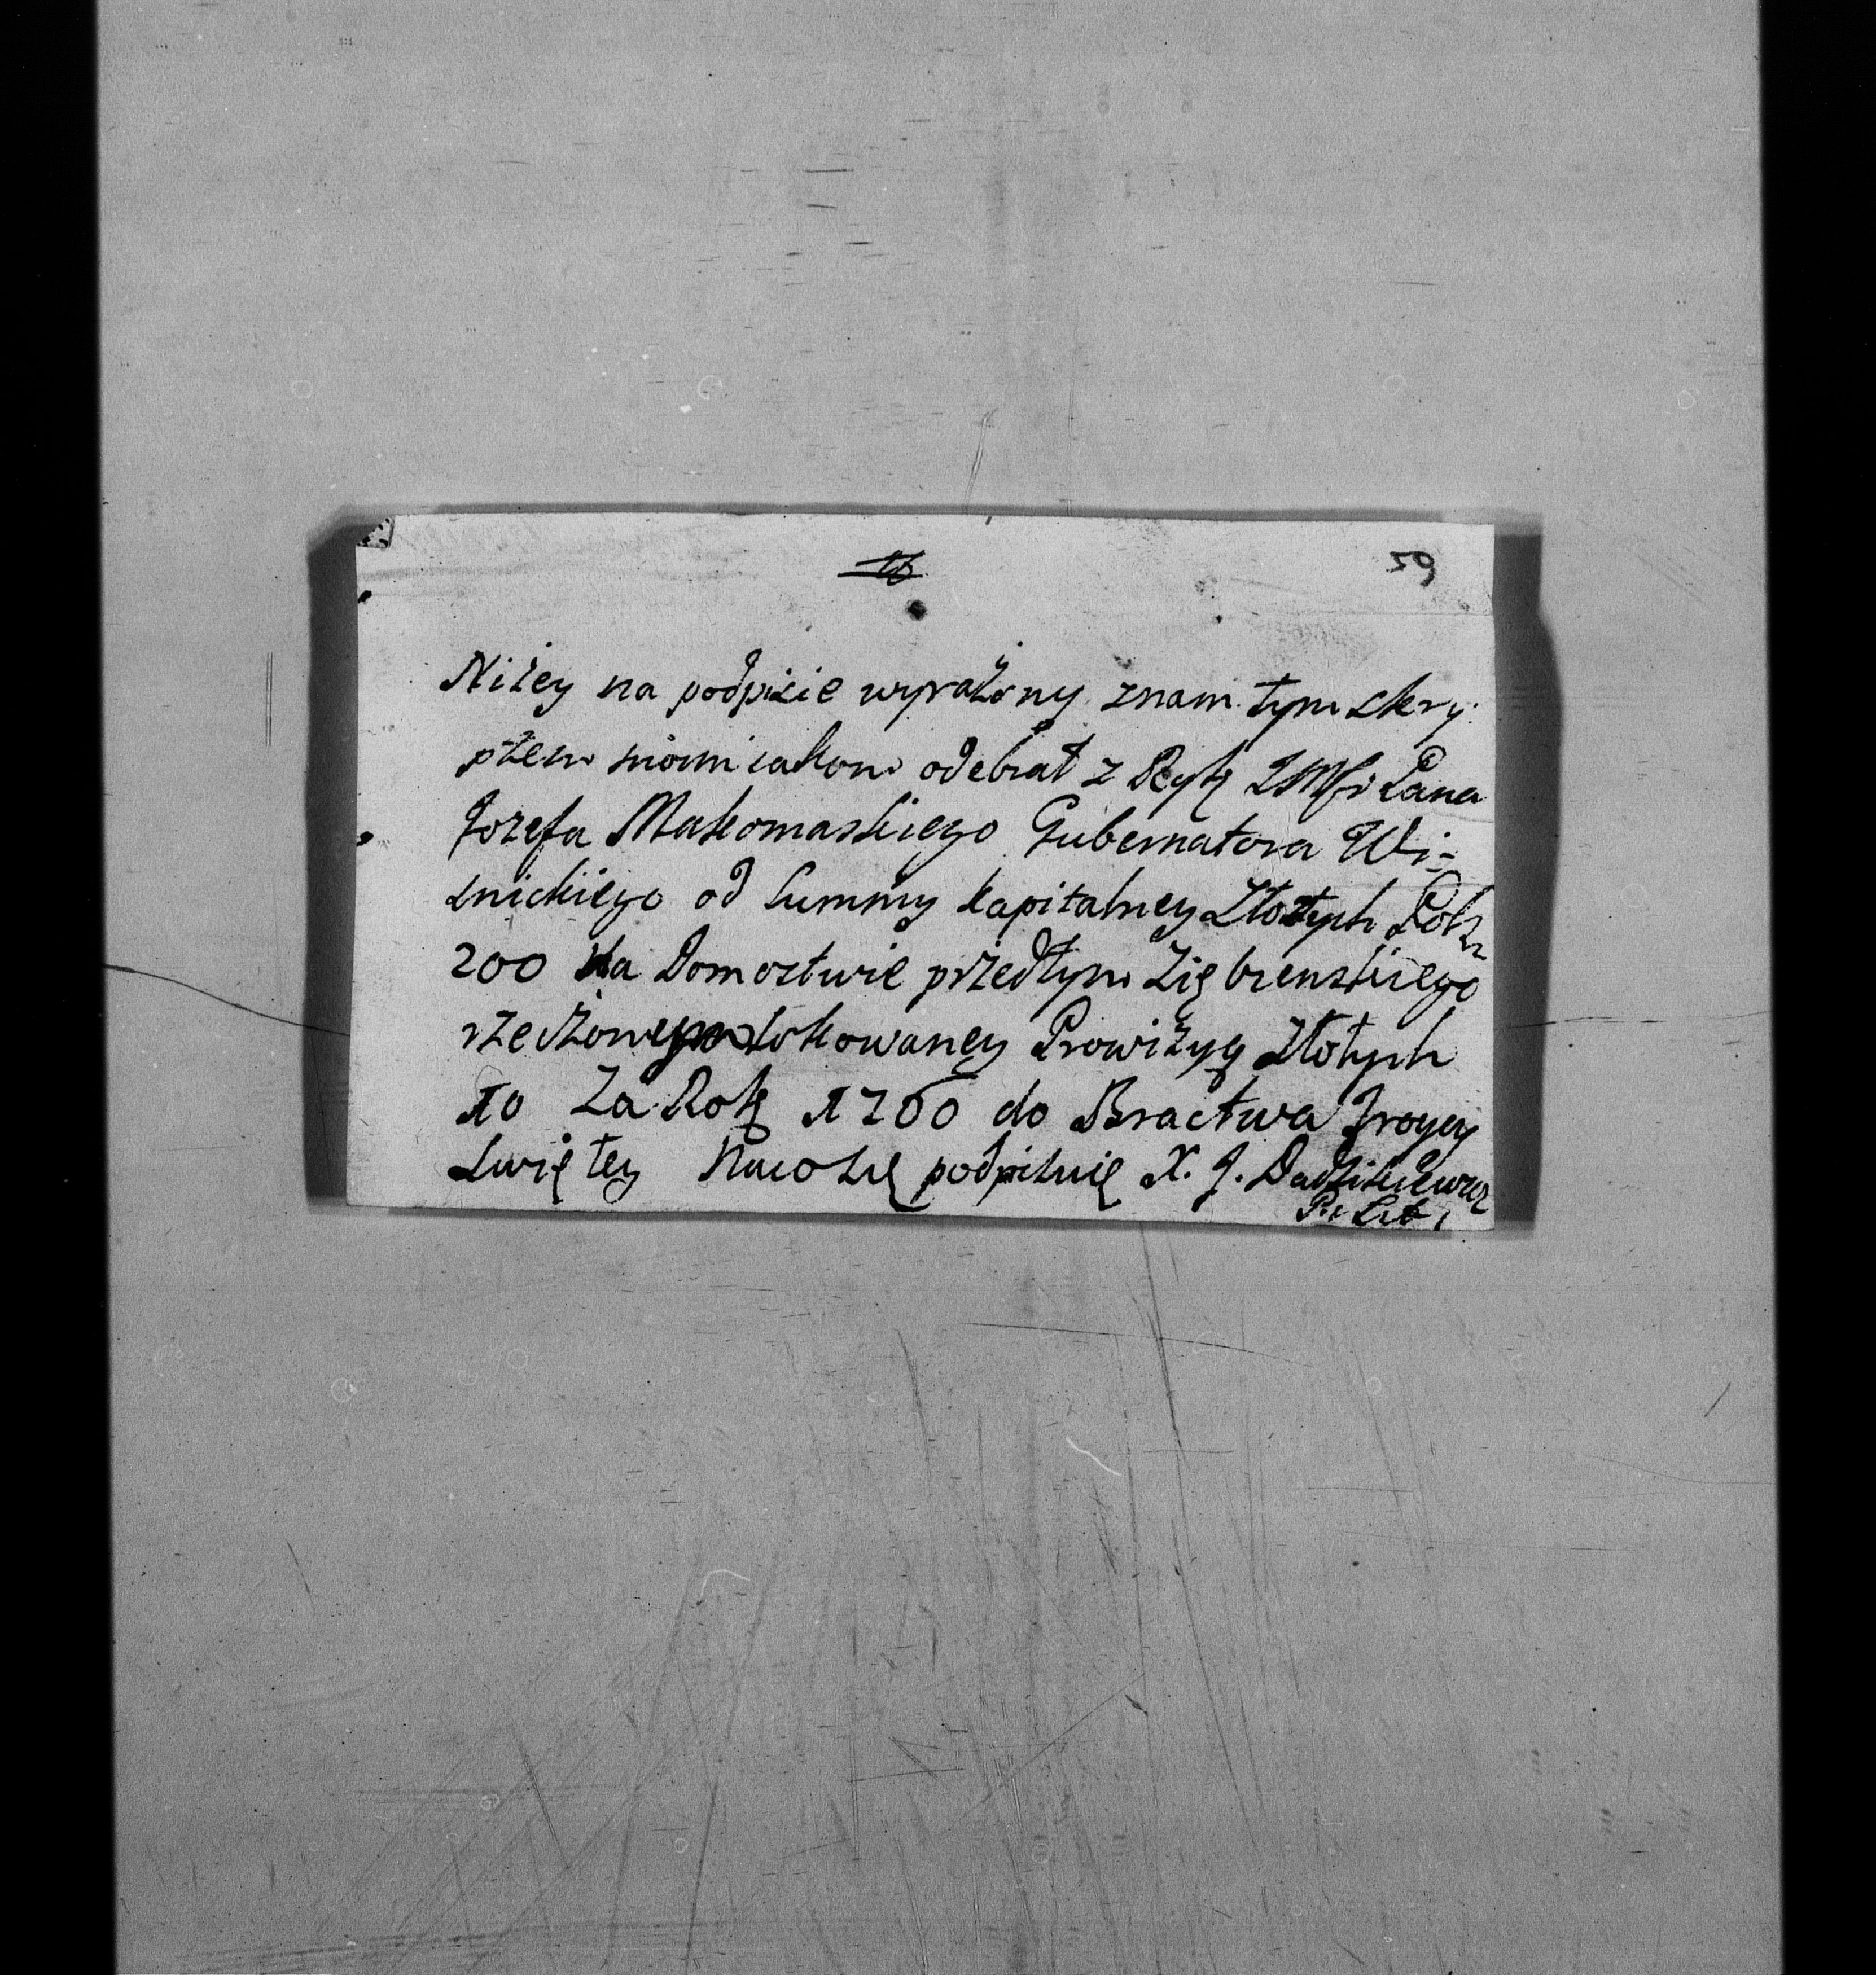 59
Niżey na podpisie wyrażony znam tym skry-
ptem moim iakom odebrał z Rąk JMći Pana
Jozefa Makomaskiego Gubernatora Wi-
snickiego od Summy kapitalney Złotych Pols
200 Na Domostwie przedtym
rzeczonego lokowaney Prowizyą Złotych
10 Za Rok 1760 do Bractwa Troycy
Swiętey Na co się podpisuię X. J.